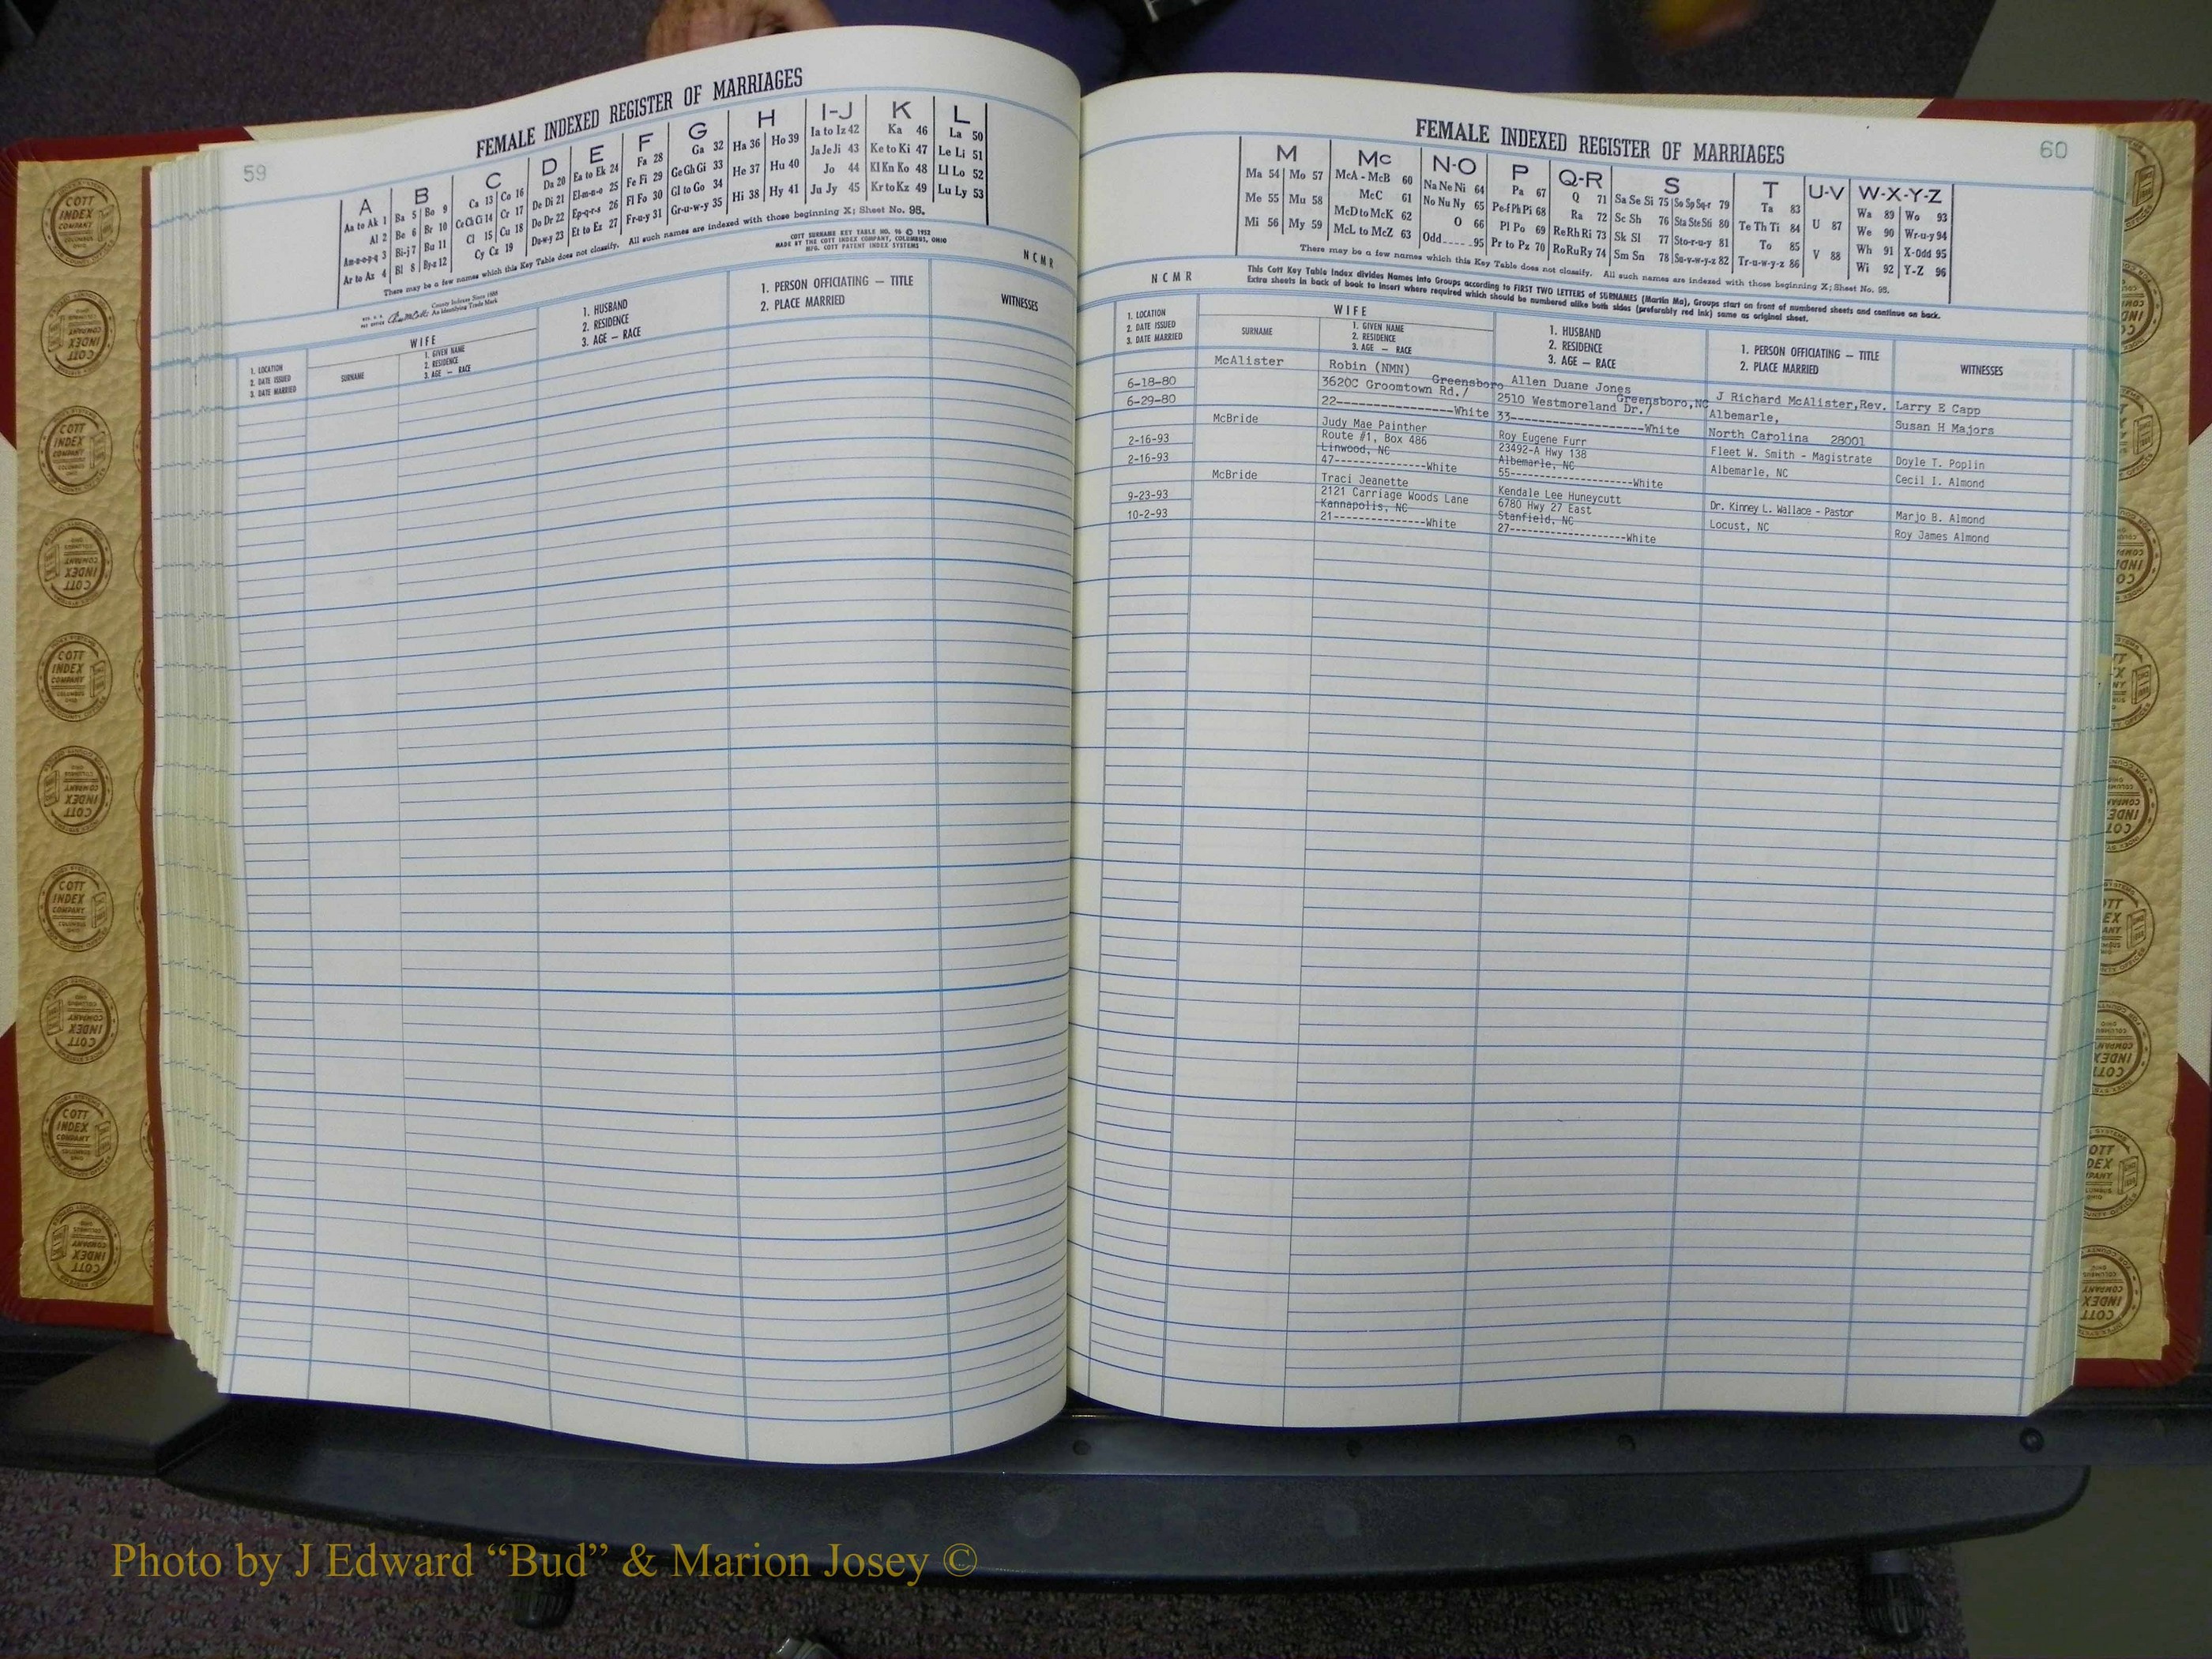 59
FEMALE INDEXED REGISTER OF MARRIAGES
A B C D E F G H I-J K L
Aa to Ak 1 Ba 5 Bo 9 Ca 13 Co 16 Da 20 Ea to Ek 24 Fa 28 Ga 32 Ha 36 Ho 39 Ia to Iz 42 Ka 46 La 50
Al 2 Be 6 Br 10 Ce Ch Ci 14 Cr 17 De Di 21 El-m-n-o 25 Fe Fi 29 Ge Gh Gi 33 He 37 Hu 40 Ja Je Ji 43 Ke to Ki 47 Le Li 51
Am-n-o-p-q 3 Bi-j 7 Bu 11 Cl 15 Cu 18 Do Dr 22 Ep-q-r-s 26 Fl Fo 30 Gl to Go 34 Hi 38 Hy 41 Jo 44 Kl Kn Ko 48 Ll Lo 52
Ar to Az 4 Bl 8 By-z 12 Cy Cz 19 Du-w-y 23 Et to Ez 27 Fr-u-y 31 Gr-u-w-y 35 Ju Jy 45 Kr to Kz 49 Lu Ly 53
There may be a few names which this Key Table does not classify. All such names are indexed with those beginning X; Sheet No. 95.
COTT SURNAME KEY TABLE NO. 96 © 1952
MADE BY THE COTT INDEX COMPANY, COLUMBUS, OHIO
MFG. COTT PATENT INDEX SYSTEMS
County Indexes Since 1888
An Identifying Trade Mark
NCMR
1. LOCATION
2. DATE ISSUED
3. DATE MARRIED
WIFE
SURNAME
1. GIVEN NAME
2. RESIDENCE
3. AGE — RACE
1. HUSBAND
2. RESIDENCE
3. AGE — RACE
1. PERSON OFFICIATING — TITLE
2. PLACE MARRIED
WITNESSES
60
FEMALE INDEXED REGISTER OF MARRIAGES
M Mc N-O P Q-R S T U-V W-X-Y-Z
Ma 54 Mo 57 McA - McB 60 Na Ne Ni 64 Pa 67 Q 71 Sa Se Si 75 So Sp Sq-r 79 Ta 83 U 87 Wa 89 Wo 93
Me 55 Mu 58 McC 61 No Nu Ny 65 Pe-f Ph Pi 68 Ra 72 Sc Sh 76 Sta Ste Sti 80 Te Th Ti 84 V 88 We 90 Wr-u-y 94
Mi 56 My 59 McD to McK 62 O 66 Pl Po 69 Re Rh Ri 73 Sk Sl 77 Sto-r-u-y 81 To 85 Wh 91 X-Odd 95
McL to McZ 63 Odd 95 Pr to Pz 70 Ro Ru Ry 74 Sm Sn 78 Su-v-w-y-z 82 Tr-u-w-y-z 86 Wi 92 Y-Z 96
There may be a few names which this Key Table does not classify. All such names are indexed with those beginning X; Sheet No. 95.
NCMR
This Cott Key Table Index divides Names into Groups according to FIRST TWO LETTERS of SURNAMES (Martin Ma), Groups start on front of numbered sheets and continue on back.
Extra sheets in back of book to insert where required which should be numbered alike both sides (preferably red ink) same as original sheet.
1. LOCATION
2. DATE ISSUED
3. DATE MARRIED
WIFE
SURNAME
1. GIVEN NAME
2. RESIDENCE
3. AGE — RACE
1. HUSBAND
2. RESIDENCE
3. AGE — RACE
1. PERSON OFFICIATING — TITLE
2. PLACE MARRIED
WITNESSES
McAlister Robin (NMN) Allen Duane Jones J Richard McAlister,Rev. Larry E Capp
6-18-80 3620C Groomtown Rd./ Greensboro 2510 Westmoreland Dr./ Greensboro,NC Albemarle, Susan H Majors
6-29-80 22----------------White 33------------------White North Carolina 28001
McBride Judy Mae Painther Roy Eugene Furr Fleet W. Smith - Magistrate Doyle T. Poplin
2-16-93 Route #1, Box 486 23492-A Hwy 138 Albemarle, NC Cecil I. Almond
Linwood, NC Albemarle, NC
2-16-93 47--------------White 55------------------White
McBride Traci Jeanette Kendale Lee Huneycutt Dr. Kinney L. Wallace - Pastor Marjo B. Almond
9-23-93 2121 Carriage Woods Lane 6780 Hwy 27 East Locust, NC Roy James Almond
Kannapolis, NC Stanfield, NC
10-2-93 21--------------White 27------------------White
COTT INDEX COMPANY
Photo by J Edward “Bud” & Marion Josey ©